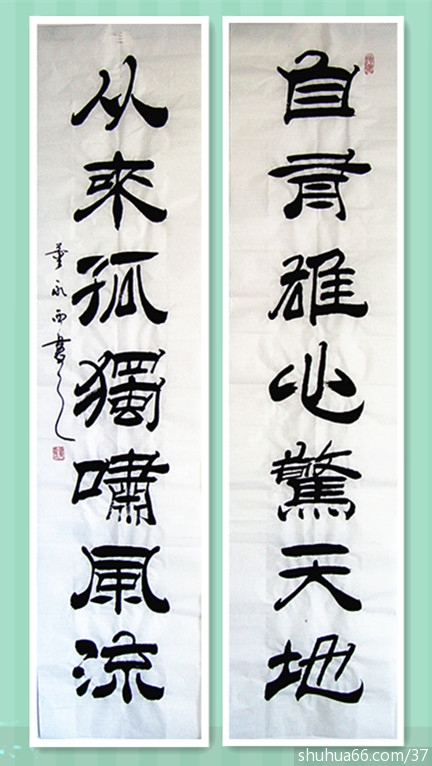 自有雄心驚天地
从來孤獨嘯風流
董永西書
shuhua66.com/37